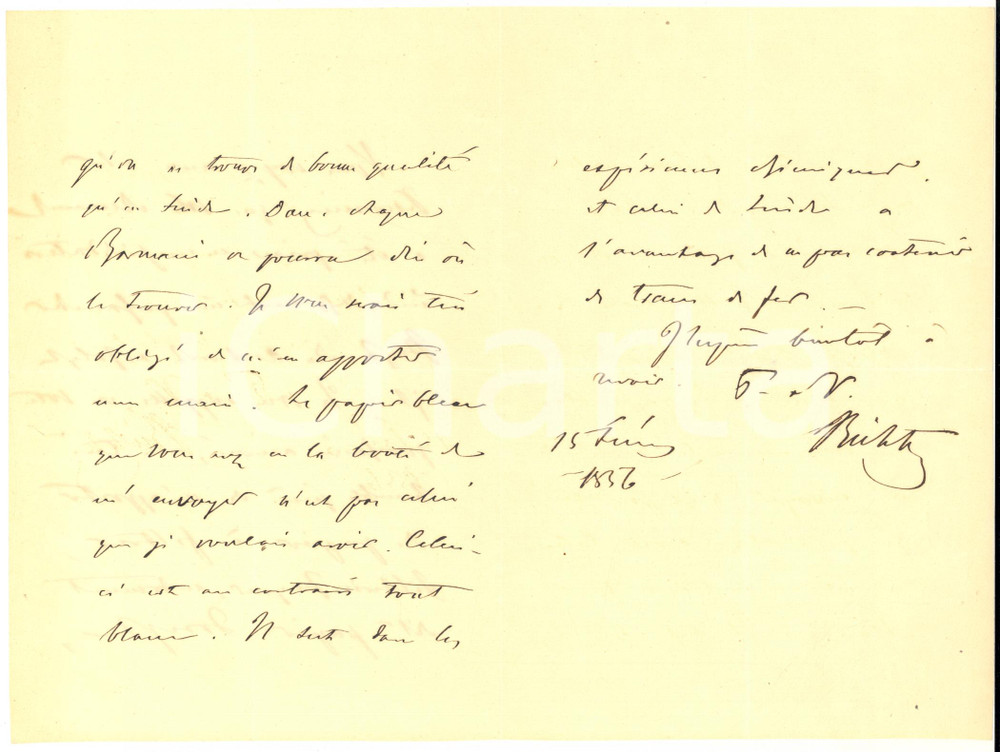 qu'on ne trouve de bonne qualité
qu'en Suède. Dans chaque
on pourra dire où
le trouver. Je vous serais très
obligé de m'en apporter
une main. Le papier bleu
que vous avez eu la bonté de
m'envoyer n'est pas celui
que je voulais avoir. Celui-
ci est au contraire tout
blanc. Il sert dans les
expériences chimiques
et celui de Suède a
l'avantage de ne pas contenir
de traces de fer.
J'espère bientôt à
revoir. T. à V.
15 février
1856
iCharta